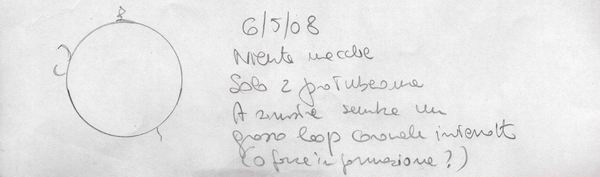 6/5/08
Niente macchie
Solo 2 protuberanze
A sinistra sembra un
grosso loop coronale interrotto
(o forse in formazione?)